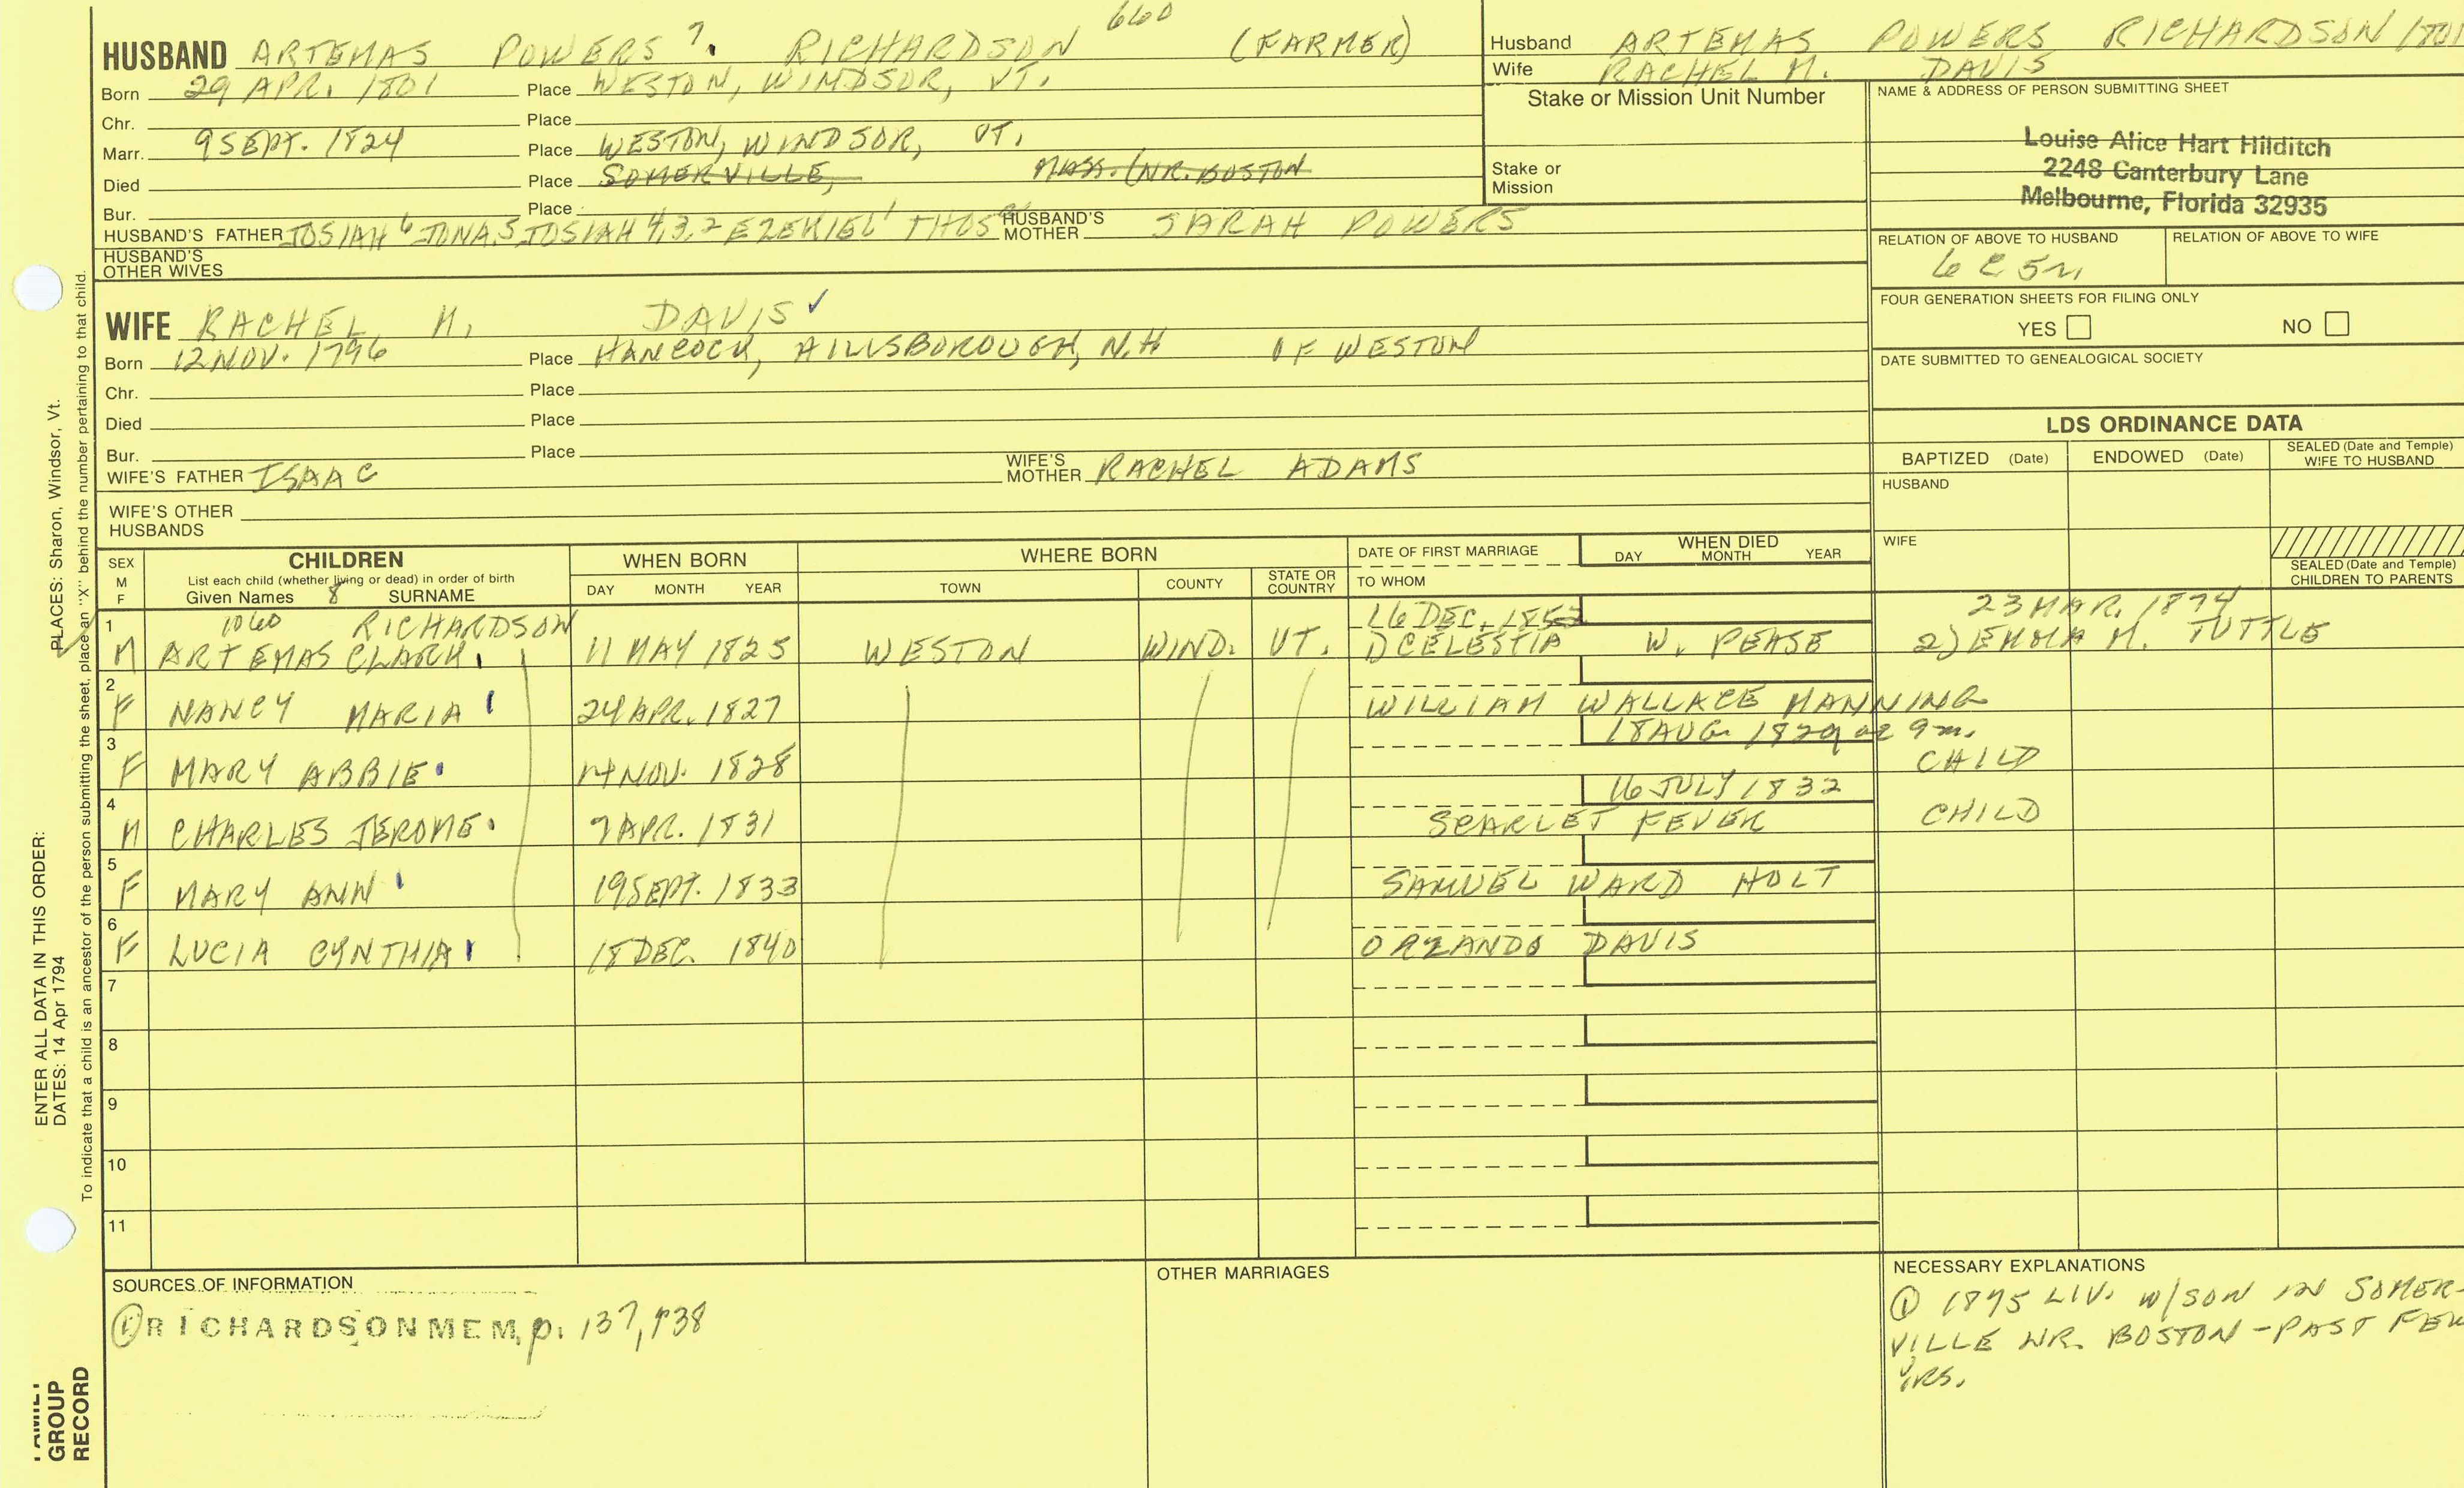 660
HUSBAND ARTEMAS POWERS 7. RICHARDSON (FARMER)
Born 29 APR. 1801 Place WESTON, WINDSOR, VT.
Chr. Place
Marr. 9 SEPT. 1824 Place WESTON, WINDSOR, VT.
Died Place SOMERVILLE, MASS. (NR. BOSTON
Bur. Place
HUSBAND'S FATHER JOSIAH 6 JONA. 5 JOSIAH 4,3,2 EZEKIEL 1 THOS HUSBAND'S MOTHER SARAH POWERS
HUSBAND'S OTHER WIVES
WIFE RACHEL M. DAVIS ✓
Born 12 NOV. 1796 Place HANCOCK, HILLSBOROUGH, N.H OF WESTON
Chr. Place
Died Place
Bur. Place
WIFE'S FATHER ISAAC WIFE'S MOTHER RACHEL ADAMS
WIFE'S OTHER HUSBANDS
Husband ARTEMAS POWERS RICHARDSON 1801
Wife RACHEL M. DAVIS
Stake or Mission Unit Number
Stake or Mission
NAME & ADDRESS OF PERSON SUBMITTING SHEET
Louise Alice Hart Hilditch
2248 Canterbury Lane
Melbourne, Florida 32935
RELATION OF ABOVE TO HUSBAND RELATION OF ABOVE TO WIFE
6 C 5 r
FOUR GENERATION SHEETS FOR FILING ONLY
YES NO
DATE SUBMITTED TO GENEALOGICAL SOCIETY
LDS ORDINANCE DATA
BAPTIZED (Date) ENDOWED (Date) SEALED (Date and Temple) WIFE TO HUSBAND
HUSBAND
WIFE
SEALED (Date and Temple) CHILDREN TO PARENTS
SEX M F
CHILDREN
List each child (whether living or dead) in order of birth
Given Names 8 SURNAME
WHEN BORN
DAY MONTH YEAR
WHERE BORN
TOWN COUNTY STATE OR COUNTRY
DATE OF FIRST MARRIAGE
TO WHOM
WHEN DIED
DAY MONTH YEAR
1 1060 RICHARDSON 16 DEC. 1853 23 MAR. 1874
M ARTEMAS CLARK. 11 MAY 1825 WESTON WIND. VT. DCELESTIA W. PEASE 2) EMMA M. TUTTLE
2
F NANCY MARIA 24 APR. 1827 WILLIAM WALLACE MANNING
3 18 AUG. 1829 ae 9m.
F MARY ABBIE. 14 NOV. 1828 CHILD
4 16 JULY 1832
M CHARLES JEROME. 7 APR. 1831 SCARLET FEVER CHILD
5
F MARY ANN 19 SEPT. 1833 SAMUEL WARD HOLT
6
F LUCIA CYNTHIA 18 DEC. 1840 ORLANDO DAVIS
7
8
9
10
11
SOURCES OF INFORMATION
① RICHARDSON MEM. p. 137, 138
OTHER MARRIAGES
NECESSARY EXPLANATIONS
① 1875 LIV. w/SON IN SOMER-
VILLE NR. BOSTON - PAST FEW
YRS.
PLACES: Sharon, Windsor, Vt.
ENTER ALL DATA IN THIS ORDER:
DATES: 14 Apr 1794
To indicate that a child is an ancestor of the person submitting the sheet, place an "X" behind the number pertaining to that child.
FAMILY
GROUP
RECORD